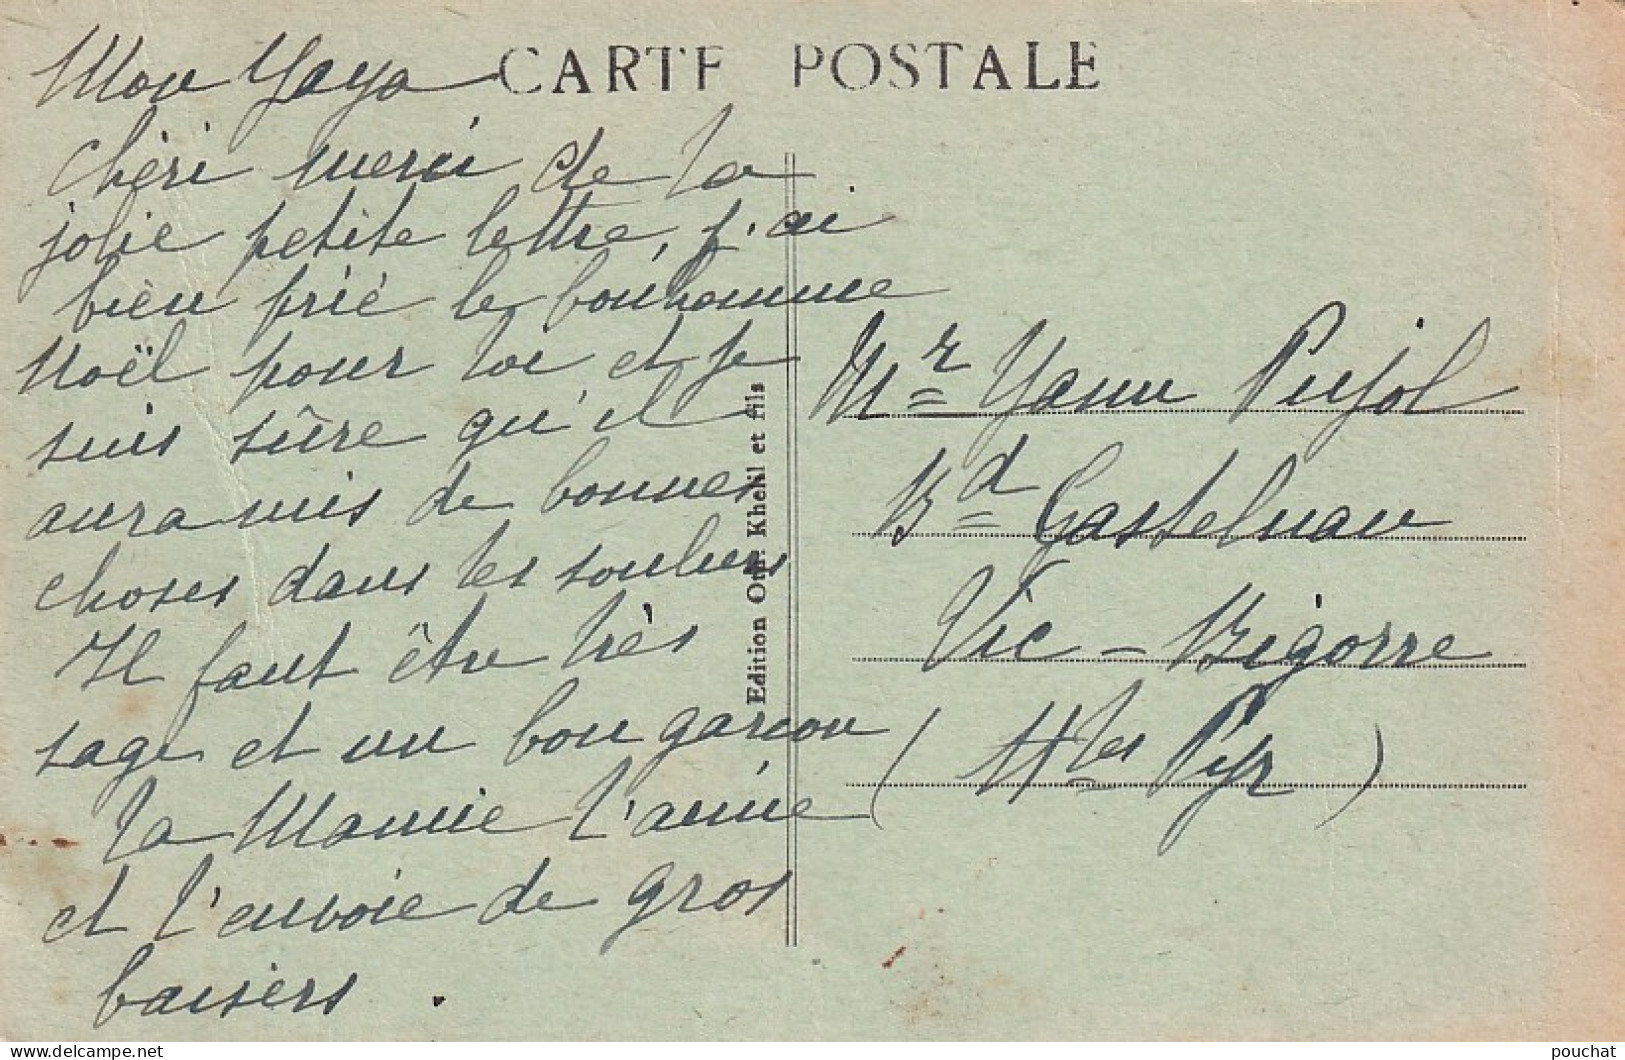 CARTE POSTALE
Mon Yaya
chéri merci de la
jolie petite lettre, j'ai
bien prié le bonhomme
Noël pour toi et je
suis sûre qu'il
aura mis de bonnes
choses dans les souliers
Il faut être très
sage et un bon garçon
ta Mamie t'aime
et t'envoie de gros
baisers.
Edition Om. Khelil et fils
Mr Yann Pujol
Bd Castelnau
Vic-Bigorre
(Htes Pyr)
pouchat